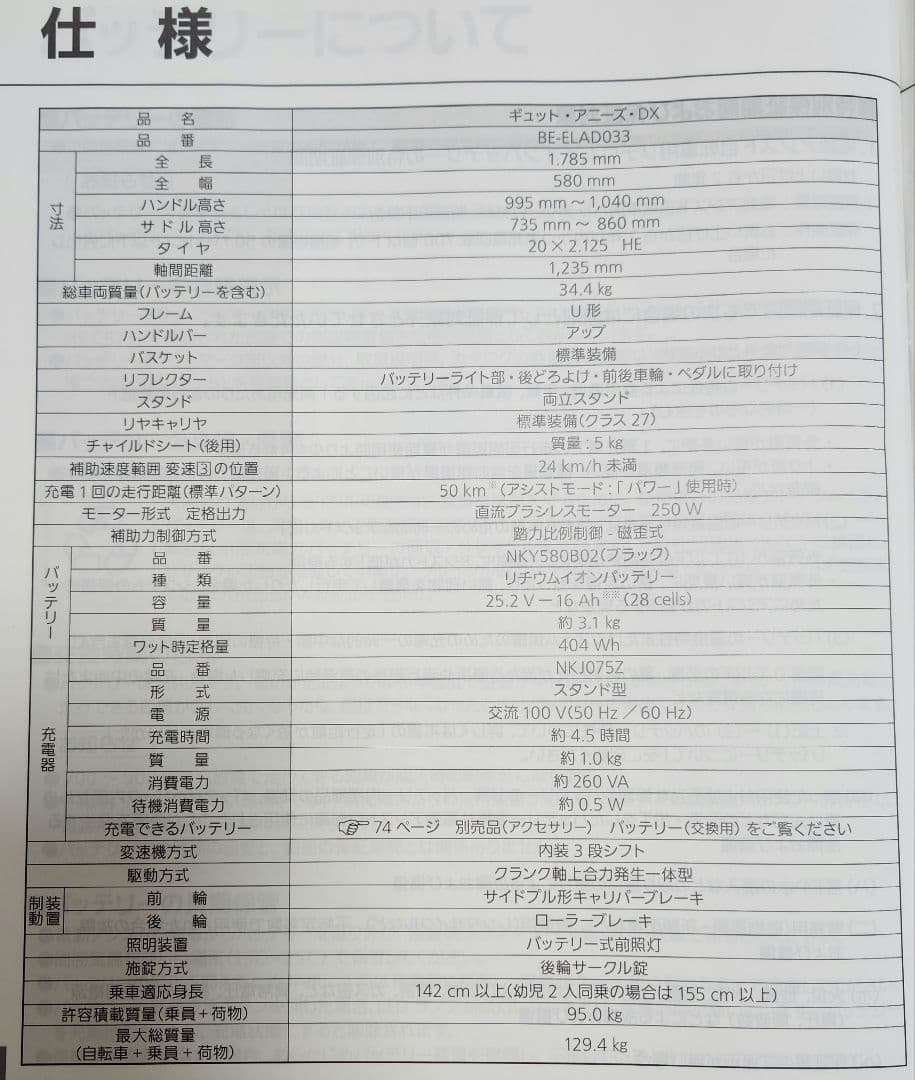 仕 様
品 名 ギュット・アニーズ・DX
品 番 BE-ELAD033
寸法
全 長 1.785 mm
全 幅 580 mm
ハンドル高さ 995 mm ～ 1,040 mm
サドル高さ 735 mm ～ 860 mm
タイヤ 20 × 2.125 HE
軸間距離 1,235 mm
総車両質量(バッテリーを含む) 34.4 kg
フレーム U 形
ハンドルバー アップ
バスケット 標準装備
リフレクター バッテリーライト部・後どろよけ・前後車輪・ペダルに取り付け
スタンド 両立スタンド
リヤキャリヤ 標準装備(クラス 27)
チャイルドシート(後用) 質量 : 5 kg
補助速度範囲 変速3の位置 24 km/h 未満
充電 1 回の走行距離(標準パターン) 50 km※(アシストモード :「パワー」使用時)
モーター形式 定格出力 直流ブラシレスモーター 250 W
補助力制御方式 踏力比例制御 - 磁歪式
バッテリー
品 番 NKY580B02(ブラック)
種 類 リチウムイオンバッテリー
容 量 25.2 V － 16 Ah※※(28 cells)
質 量 約 3.1 kg
ワット時定格量 404 Wh
充電器
品 番 NKJ075Z
形 式 スタンド型
電 源 交流 100 V(50 Hz ／ 60 Hz)
充電時間 約 4.5 時間
質 量 約 1.0 kg
消費電力 約 260 VA
待機消費電力 約 0.5 W
充電できるバッテリー ☞ 74 ページ 別売品(アクセサリー) バッテリー(交換用) をご覧ください
変速機方式 内装 3 段シフト
駆動方式 クランク軸上合力発生一体型
制動装置
前 輪 サイドプル形キャリパーブレーキ
後 輪 ローラーブレーキ
照明装置 バッテリー式前照灯
施錠方式 後輪サークル錠
乗車適応身長 142 cm 以上(幼児 2 人同乗の場合は 155 cm 以上)
許容積載質量(乗員 + 荷物) 95.0 kg
最大総質量
(自転車 + 乗員 + 荷物) 129.4 kg